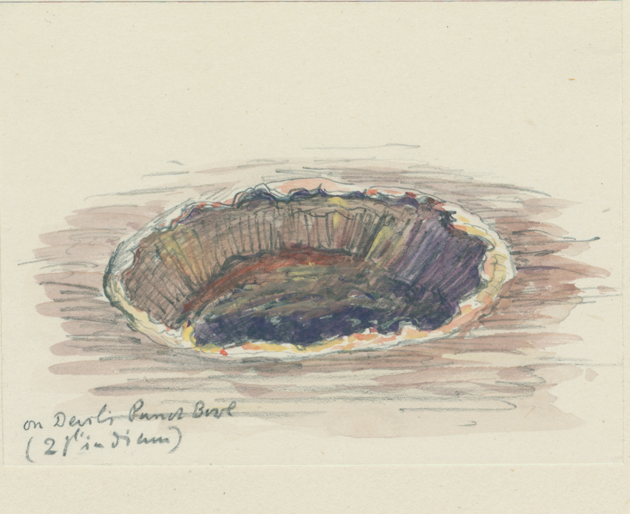 on Devil's Punch Bowl
(2 ft in diam)